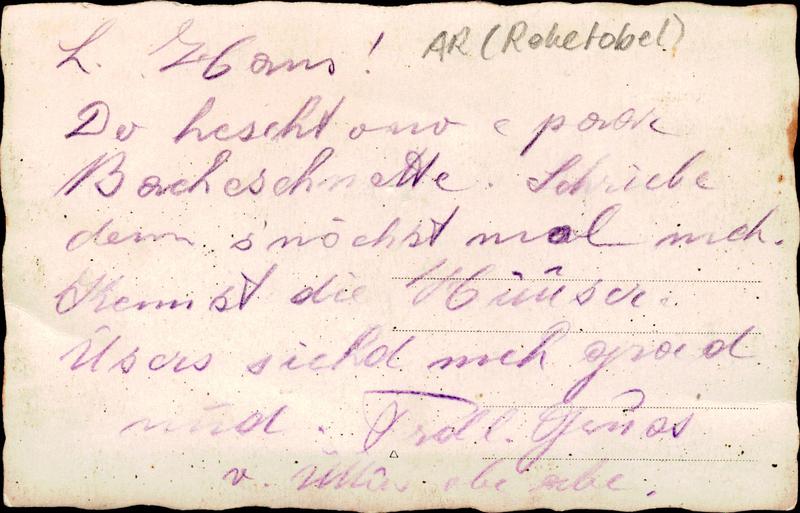 L. Hans! AR (Rehetobel)
Do hescht ono e paar
Bacheschnette. Schriebe
denn s'nöchst mol meh.
Kennst die Hüüser.
Üsers siehd meh grad
nüd. Frdl. Grüas
v. ebe abe.